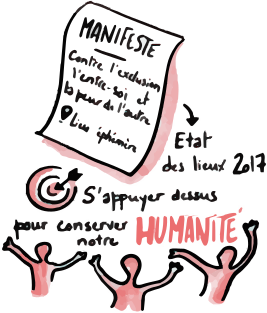 MANIFESTE
Contre l'exclusion
l'entre-soi et
la peur de l'autre
Lieu éphémère
Etat
des lieux 2017
S'appuyer dessus
pour conserver
notre HUMANITÉ